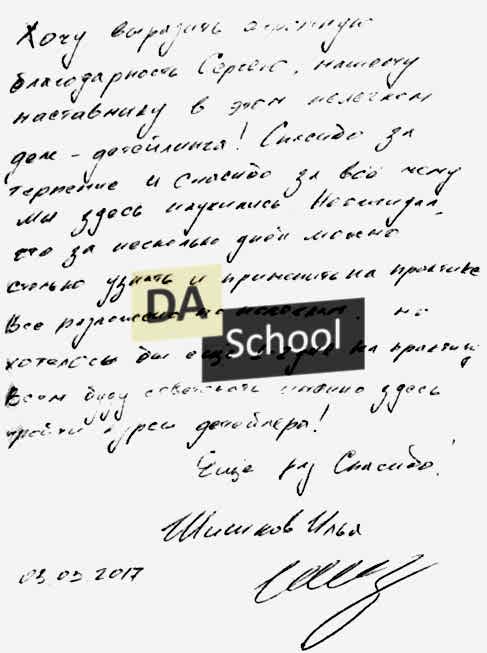 Хочу выразить огромную
благодарность Сергею, нашему
наставнику в этом нелегком
деле - детейлинга! Спасибо за
терпение и спасибо за всё чему
мы здесь научились. Не ожидал,
что за несколько дней можно
столько узнать и применить на практике
Все разложено по полочкам. но
хотелось бы еще на практику
Всем буду советовать именно здесь
пройти курсы детейлера!
Еще раз Спасибо!
Шишков Илья
03.05 2017
DA
School